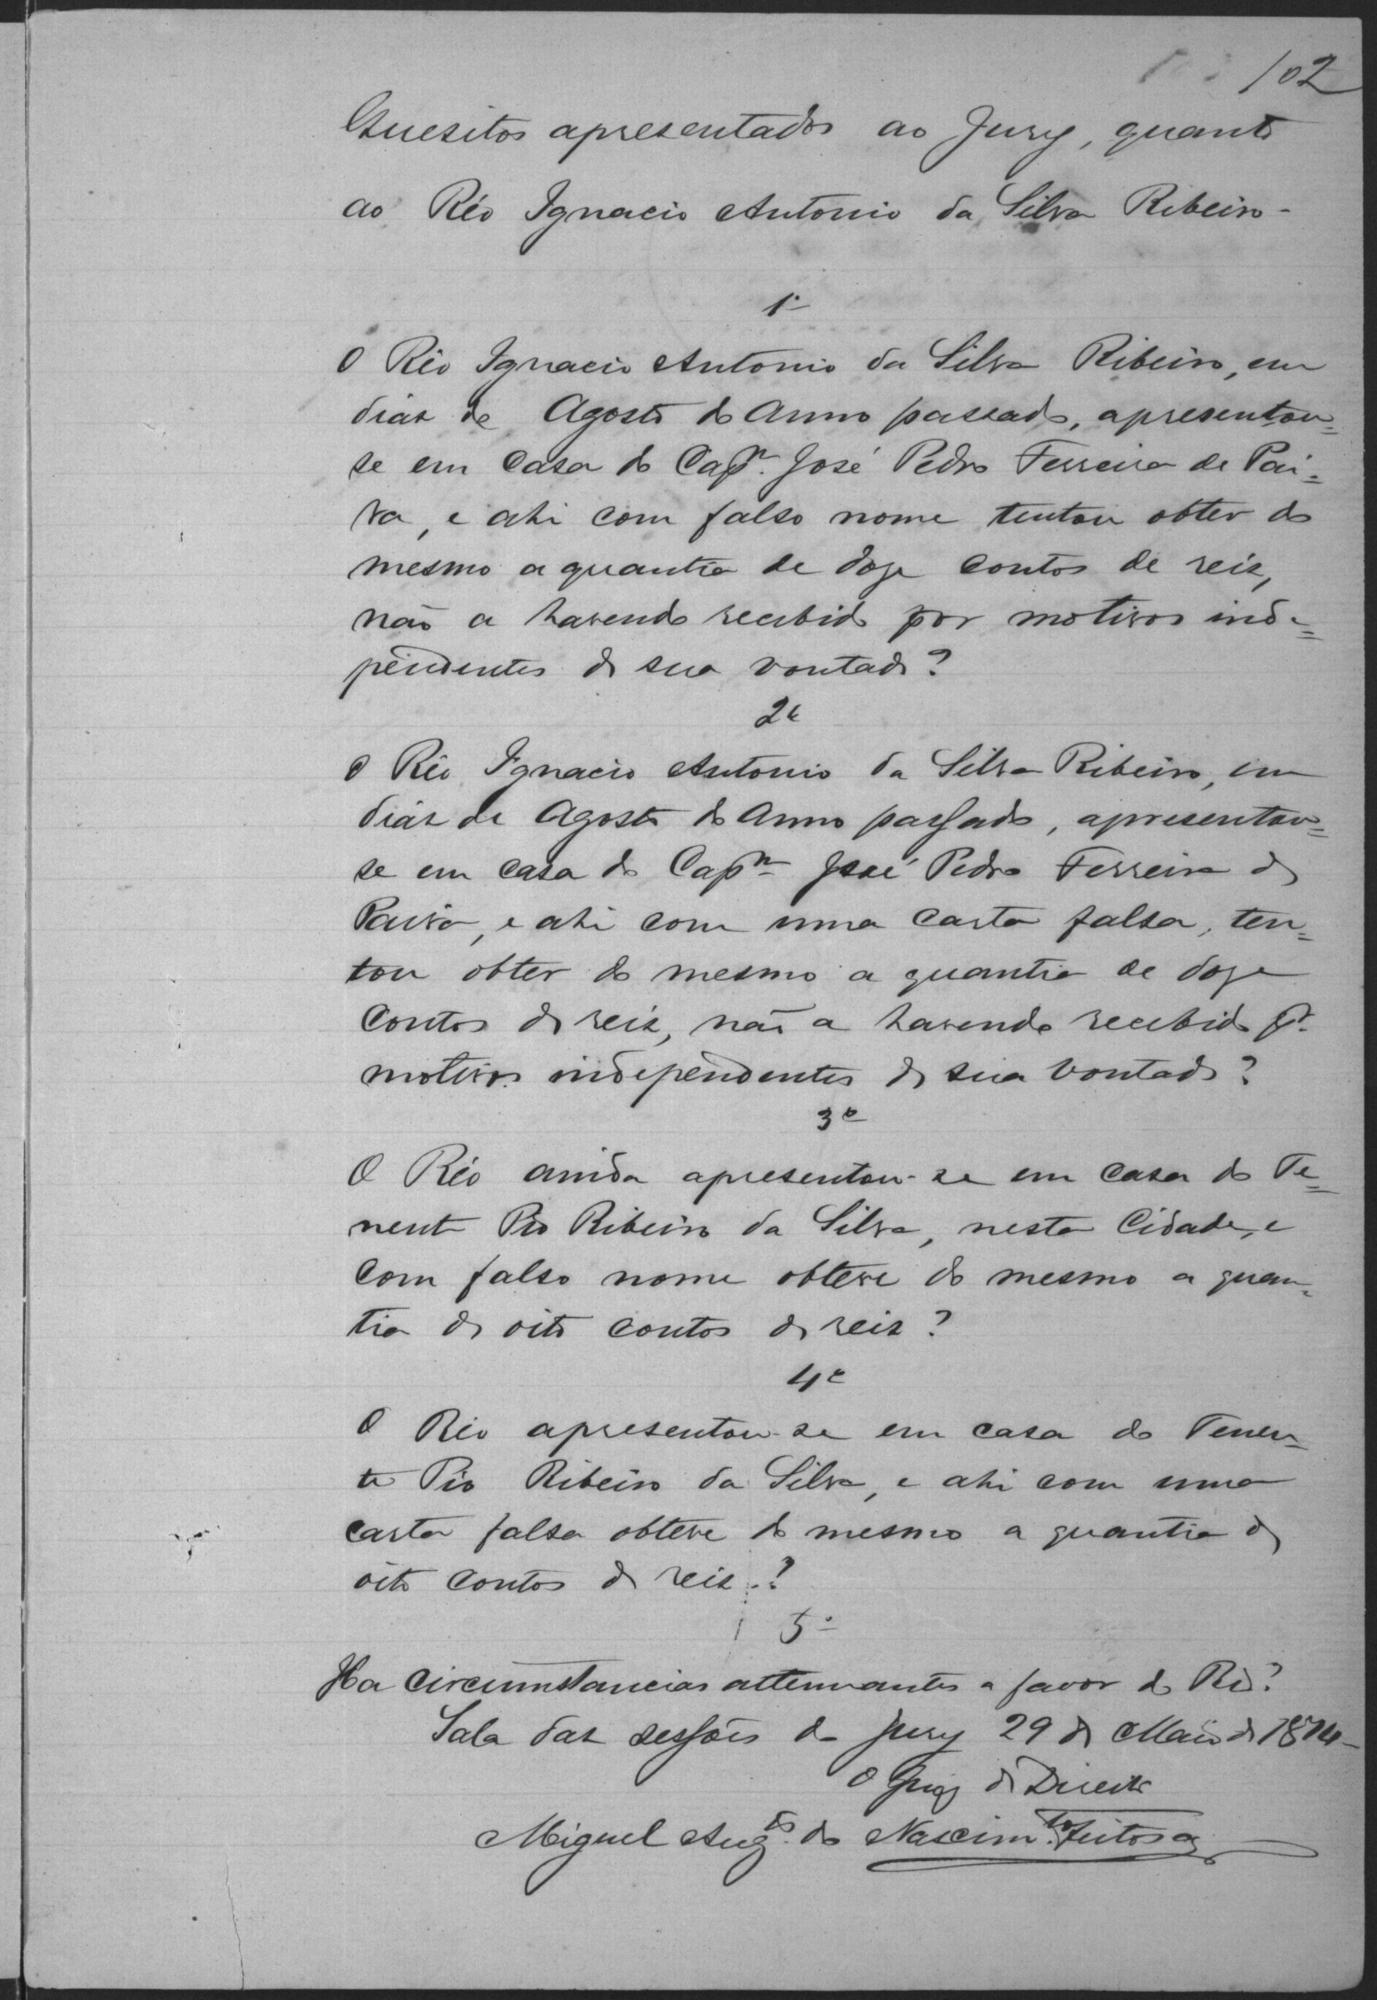 102
Quesitos apresentados ao Jury, quanto
ao Réo Ignacio Antonio da Silva Ribeiro -
1º
O Réo Ignacio Antonio da Silva Ribeiro, em
dias de Agosto do Anno passado, apresentou=
se em casa do Capm. José Pedro Ferreira de Pai=
va, e ahi com falso nome tentou obter do
mesmo a quantia de doze contos de reis,
não a havendo recebido por motivos inde=
pendentes de sua vontade?
2º
O Réo Ignacio Antonio da Silva Ribeiro, em
dias de Agosto do Anno passado, apresentou=
se em casa do Capm José Pedro Ferreira de
Paiva, e ahi com uma carta falsa, ten=
tou obter do mesmo a quantia de doze
contos de reis, não a havendo recebido pr.
motivos independentes de sua vontade?
3º
O Réo ainda apresentou-se em casa do Te=
nente Pio Ribeiro da Silva, nesta Cidade, e
com falso nome obteve do mesmo a quan=
tia de oito contos de reis?
4º
O Réo apresentou-se em casa do Tenen=
te Pio Ribeiro da Silva, e ahi com uma
carta falsa obteve do mesmo a quantia de
oito contos de reis?
5º
Ha circumstancias attenuantes a favor do Réo?
Sala das sessões do Jury 29 de Maio de 1874
O Juiz de Direito
Miguel Augto. do Nascimto. Feitosa